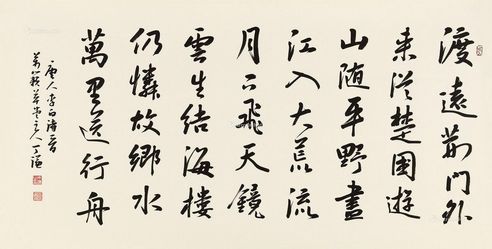 渡遠荆門外
来從楚國遊
山随平野盡
江入大荒流
月下飛天鏡
雲生結海樓
仍憐故鄉水
萬里送行舟
唐人李白詩一首